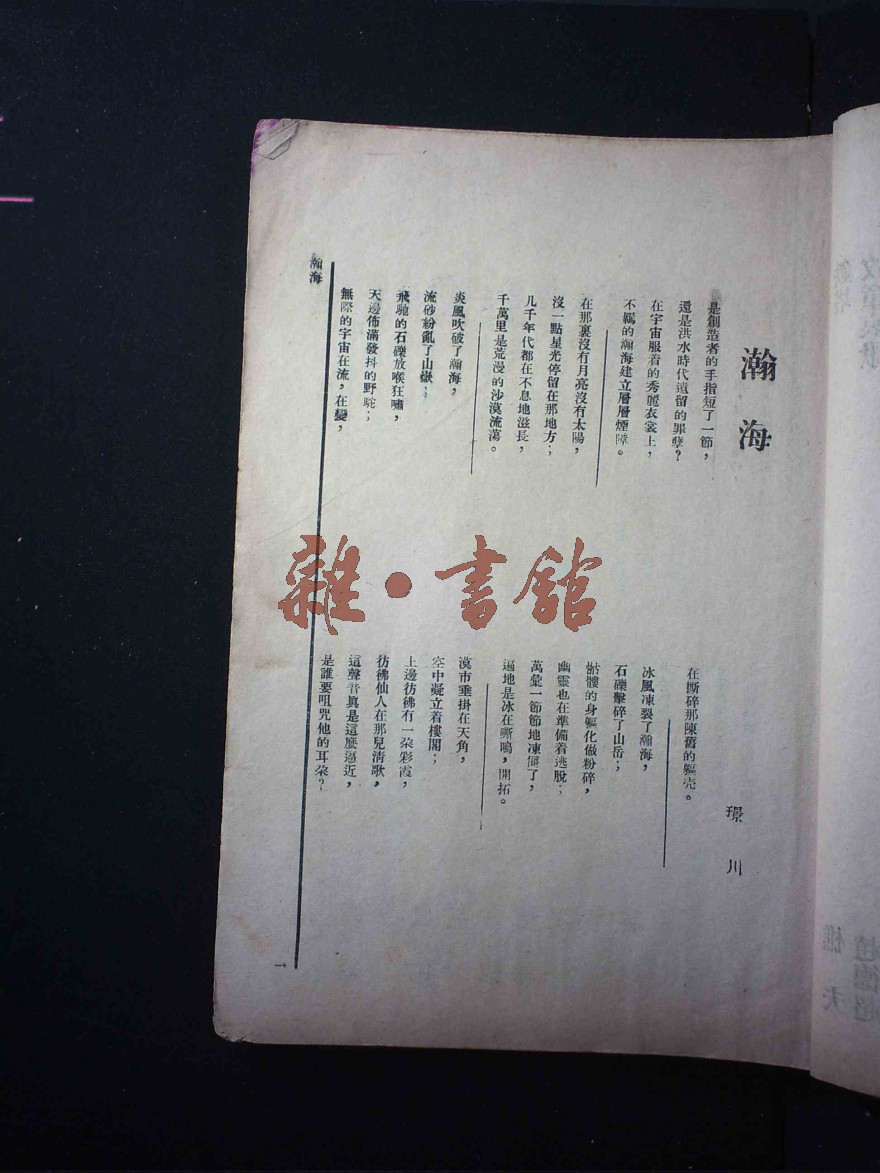 瀚海
璟川
是創造者的手指短了一節，
還是洪水時代遺留的罪孽？
在宇宙服着的秀麗衣裳上，
不羈的瀚海建立層層煙障。
在那裏沒有月亮沒有太陽，
沒一點星光停留在那地方；
几千年代都在不息地滋長，
千萬里是荒漫的沙漠流蕩。
炎風吹破了瀚海，
流砂紛亂了山嶽；
飛馳的石礫放喉狂嘯，
天邊佈滿發抖的野駝；
無際的宇宙在流，在變，
在撕碎那陳舊的軀壳。
冰風凍裂了瀚海，
石礫擊碎了山岳；
骷髏的身軀化做粉碎，
幽靈也在準備着逃脫；
萬彙一節節地凍僵了，
遍地是冰在嘶鳴，開拓。
漠市垂掛在天角，
空中凝立着樓閣；
上邊彷彿有一朶彩霞，
彷彿仙人在那兒淸歌，
這聲音眞是這麽逼近，
是誰要咀咒他的耳朶？
瀚海
一
雜·書館